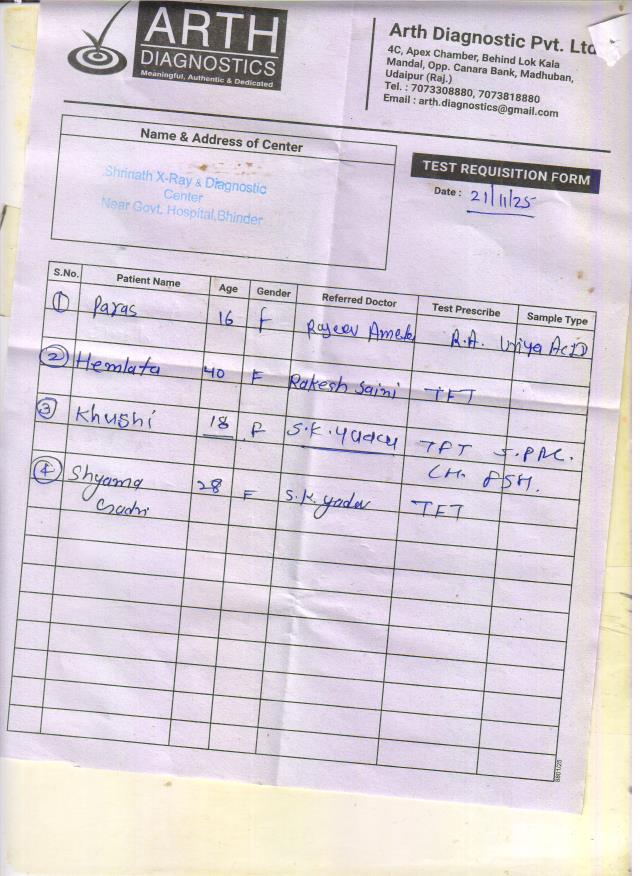 ARTH
DIAGNOSTICS
Meaningful, Authentic & Dedicated
Arth Diagnostic Pvt. Ltd.
4C, Apex Chamber, Behind Lok Kala
Mandal, Opp. Canara Bank, Madhuban,
Udaipur (Raj.)
Tel. : 7073308880, 7073818880
Email : arth.diagnostics@gmail.com
Name & Address of Center
Shrinath X-Ray & Diagnostic
Center
Near Govt. Hospital,Bhinder
TEST REQUISITION FORM
Date : 21/11/25
S.No. Patient Name Age Gender Referred Doctor Test Prescribe Sample Type
1 Paras 16 F Rajeev R.A. Uriya Acid
2 Hemlata 40 F Rakesh Saini TFT
3 Khushi 18 F S.K. Yadav TFT S. PRL.
LH. FSH.
4 Shyama 28 F S.K. Yadav TFT
8801/25